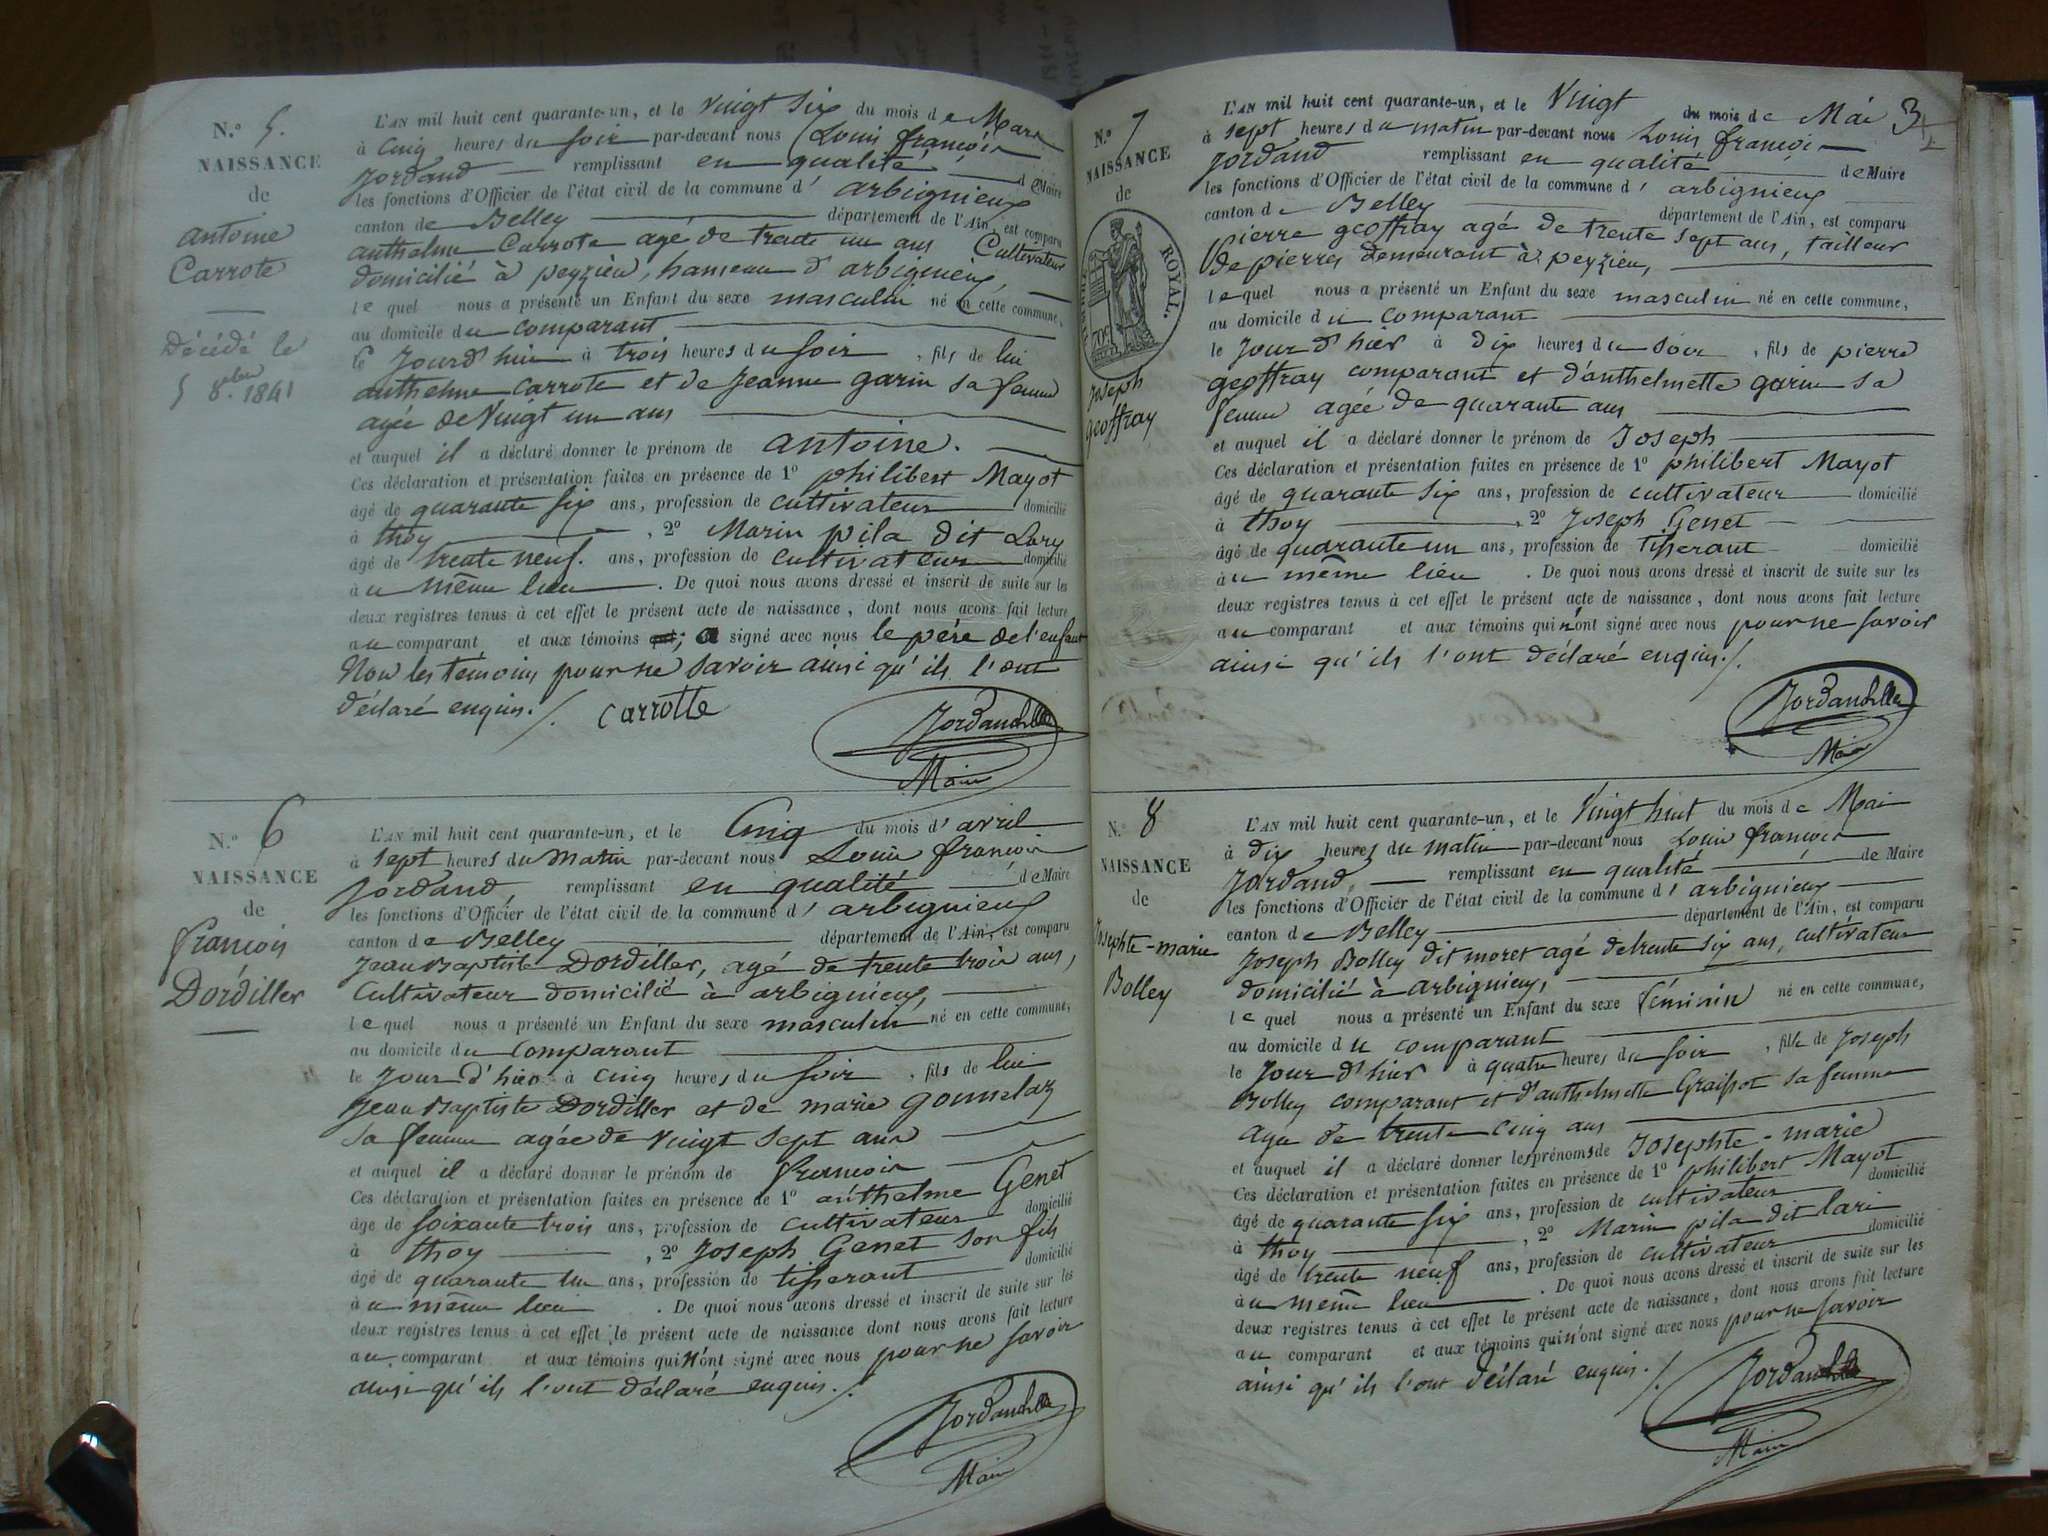 N.o 5.
NAISSANCE
de
antoine
Carrote
Décédé le
5 8.bre 1841
L'AN mil huit cent quarante-un, et le Vingt Six du mois de Mars
à Cinq heures du Soir par-devant nous Louis françois
Jordand remplissant en qualité de Maire
les fonctions d'Officier de l'état civil de la commune d' arbignieux
canton de Belley département de l'Ain, est comparu
anthelme Carrote agé de trente un ans Cultivateur
domicilié à peyzieu, hameau d'arbignieux
lequel nous a présenté un Enfant du sexe masculin né en cette commune,
au domicile du comparant
le Jourd'hui à trois heures du soir, fils de lui
anthelme carrote et de Jeanne garin sa femme
agée de Vingt un ans
et auquel il a déclaré donner le prénom de antoine.
Ces déclaration et présentation faites en présence de 1o philibert Mayot
âgé de quarante six ans, profession de cultivateur domicilié
à thoy, 2o Marin pila dit Lary
âgé de trente neuf. ans, profession de cultivateur domicilié
à u même lieu. De quoi nous avons dressé et inscrit de suite sur les
deux registres tenus à cet effet le présent acte de naissance, dont nous avons fait lecture
au comparant, et aux témoins ; a signé avec nous le père de l'enfant
Non les témoins pour ne savoir ainsi qu'ils l'ont
déclaré enquis./. Carrotte
Jordand
Maire
N.o 6
NAISSANCE
de
françois
Dordiller
L'AN mil huit cent quarante-un, et le Cinq du mois d'avril
à sept heures du Matin par-devant nous Louis françois
Jordand, remplissant en qualité de Maire
les fonctions d'Officier de l'état civil de la commune d' arbignieux
canton de Belley département de l'Ain, est comparu
Jean Baptiste Dordiller, agé de trente trois ans,
Cultivateur domicilié à arbignieux,
lequel nous a présenté un Enfant du sexe masculin né en cette commune,
au domicile du Comparant
le Jour d'hier à cinq heures du soir, fils de lui
Jean Baptiste Dordiller et de marie gonnelaz
sa femme agée de vingt sept ans
et auquel il a déclaré donner le prénom de françois
Ces déclaration et présentation faites en présence de 1o anthelme Genet
âge de soixante trois ans, profession de cultivateur domicilié
à thoy, 2o Joseph Genet son fils
âgé de quarante un ans, profession de tisserant domicilié
à u même lieu. De quoi nous avons dressé et inscrit de suite sur les
deux registres tenus à cet effet le présent acte de naissance dont nous avons fait lecture
au comparant et aux témoins qui n'ont signé avec nous pour ne savoir
ainsi qu'ils l'ont déclaré enquis./.
Jordand
Maire
3
N.o 7
NAISSANCE
de
ROYAL.
Joseph
geoffray
L'AN mil huit cent quarante-un, et le Vingt du mois de Mai
à sept heures du matin par-devant nous Louis françois
Jordand remplissant en qualité de Maire
les fonctions d'Officier de l'état civil de la commune d' arbignieux
canton de Belley département de l'Ain, est comparu
pierre geoffray agé de trente sept ans, tailleur
de pierres demeurant à peyzieu,
lequel nous a présenté un Enfant du sexe masculin né en cette commune,
au domicile du comparant
le Jour d'hier à dix heures du soir, fils de pierre
geoffray comparant et d'anthelmette garin sa
femme agée de quarante ans
et auquel il a déclaré donner le prénom de Joseph
Ces déclaration et présentation faites en présence de 1o philibert Mayot
âgé de quarante six ans, profession de cultivateur domicilié
à thoy, 2o Joseph Genet
âgé de quarante un ans, profession de tisserant domicilié
à u même lieu. De quoi nous avons dressé et inscrit de suite sur les
deux registres tenus à cet effet le présent acte de naissance, dont nous avons fait lecture
au comparant et aux témoins qui n'ont signé avec nous pour ne savoir
ainsi qu'ils l'ont déclaré enquis./.
Jordand
Maire
N.o 8
NAISSANCE
de
Josephte-marie
Bolley
L'AN mil huit cent quarante-un, et le Vingt huit du mois de Mai
à dix heures du matin par-devant nous Louis françois
Jordand, remplissant en qualité de Maire
les fonctions d'Officier de l'état civil de la commune d' arbignieux
canton de Belley département de l'Ain, est comparu
Joseph Bolley dit moret agé de trente six ans, cultivateur
domicilié à arbignieux,
lequel nous a présenté un Enfant du sexe féminin né en cette commune,
au domicile du comparant
le Jour d'hier à quatre heures du soir, fille de Joseph
Bolley comparant et d'anthelmette Graissot sa femme
agée de trente cinq ans
et auquel il a déclaré donner les prénoms de Josephte-marie
Ces déclaration et présentation faites en présence de 1o philibert Mayot
âgé de quarante six ans, profession de cultivateur domicilié
à thoy, 2o Marin pila dit lari
âgé de trente neuf ans, profession de cultivateur domicilié
à u même lieu. De quoi nous avons dressé et inscrit de suite sur les
deux registres tenus à cet effet le présent acte de naissance, dont nous avons fait lecture
au comparant et aux témoins qui n'ont signé avec nous pour ne savoir
ainsi qu'ils l'ont déclaré enquis./.
Jordand
Maire